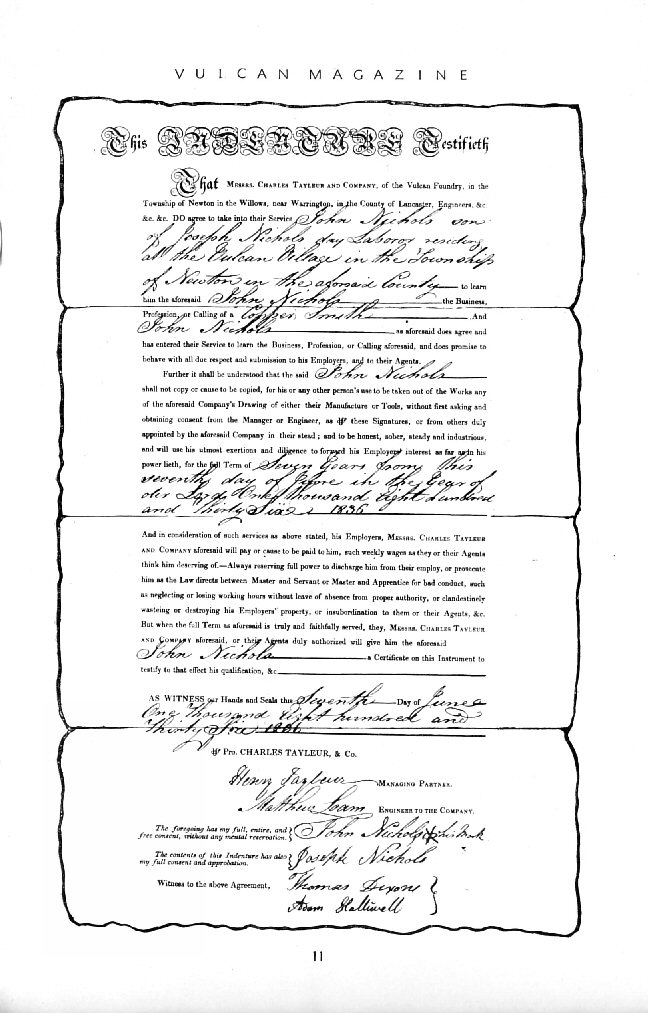 VULCAN MAGAZINE
This INDENTURE Testifieth
That MESSRS. CHARLES TAYLEUR AND COMPANY, of the Vulcan Foundry, in the
Township of Newton in the Willows, near Warrington, in the County of Lancaster, Engineers, &c
&c. &c. DO agree to take into their Service John Nichols son
of Joseph Nichols day Laboror residing
at the Vulcan Village in the Township
of Newton in the aforsaid County to learn
him the aforesaid John Nichols the Business,
Profession, or Calling of a Copper Smith And
John Nichols as aforesaid does agree and
has entered their Service to learn the Business, Profession, or Calling aforesaid, and does promise to
behave with all due respect and submission to his Employers, and to their Agents.
Further it shall be understood that the said John Nichols
shall not copy or cause to be copied, for his or any other person's use to be taken out of the Works any
of the aforesaid Company's Drawing of either their Manufacture or Tools, without first asking and
obtaining consent from the Manager or Engineer, as these Signatures, or from others duly
appointed by the aforesaid Company in their stead; and to be honest, sober, steady and industrious,
and will use his utmost exertions and diligence to forward his Employers' interest as far as in his
power lieth, for the full Term of Seven Years from this
seventh day of June in the Year of
our Lord One thousand eight hundred
and Thirty Six 1836
And in consideration of such services as above stated, his Employers, MESSRS. CHARLES TAYLEUR
AND COMPANY aforesaid will pay or cause to be paid to him, such weekly wages as they or their Agents
think him deserving of.—Always reserving full power to discharge him from their employ, or prosecute
him as the Law directs between Master and Servant or Master and Apprentice for bad conduct, such
as neglecting or losing working hours without leave of absence from proper authority, or clandestinely
wasteing or destroying his Employers' property, or insubordination to them or their Agents, &c.
But when the full Term as aforesaid is truly and faithfully served, they, MESSRS. CHARLES TAYLEUR
AND COMPANY aforesaid, or their Agents duly authorized will give him the aforesaid
John Nichols a Certificate on this Instrument to
testify to that effect his qualities, &c
AS WITNESS our Hands and Seals this Seventh Day of June
One thousand eight hundred and
Thirty Six 1836
Pro. CHARLES TAYLEUR, & Co.
Henry Tayleur MANAGING PARTNER.
Matthew Loam ENGINEER TO THE COMPANY.
The foregoing has my full, entire, and
free consent, without any mental reservation. } John Nichols X his Mark
The contents of this Indenture has also
my full consent and approbation. } Joseph Nichols
Witness to the above Agreement, Thomas Dixons
Adam Halliwell
11